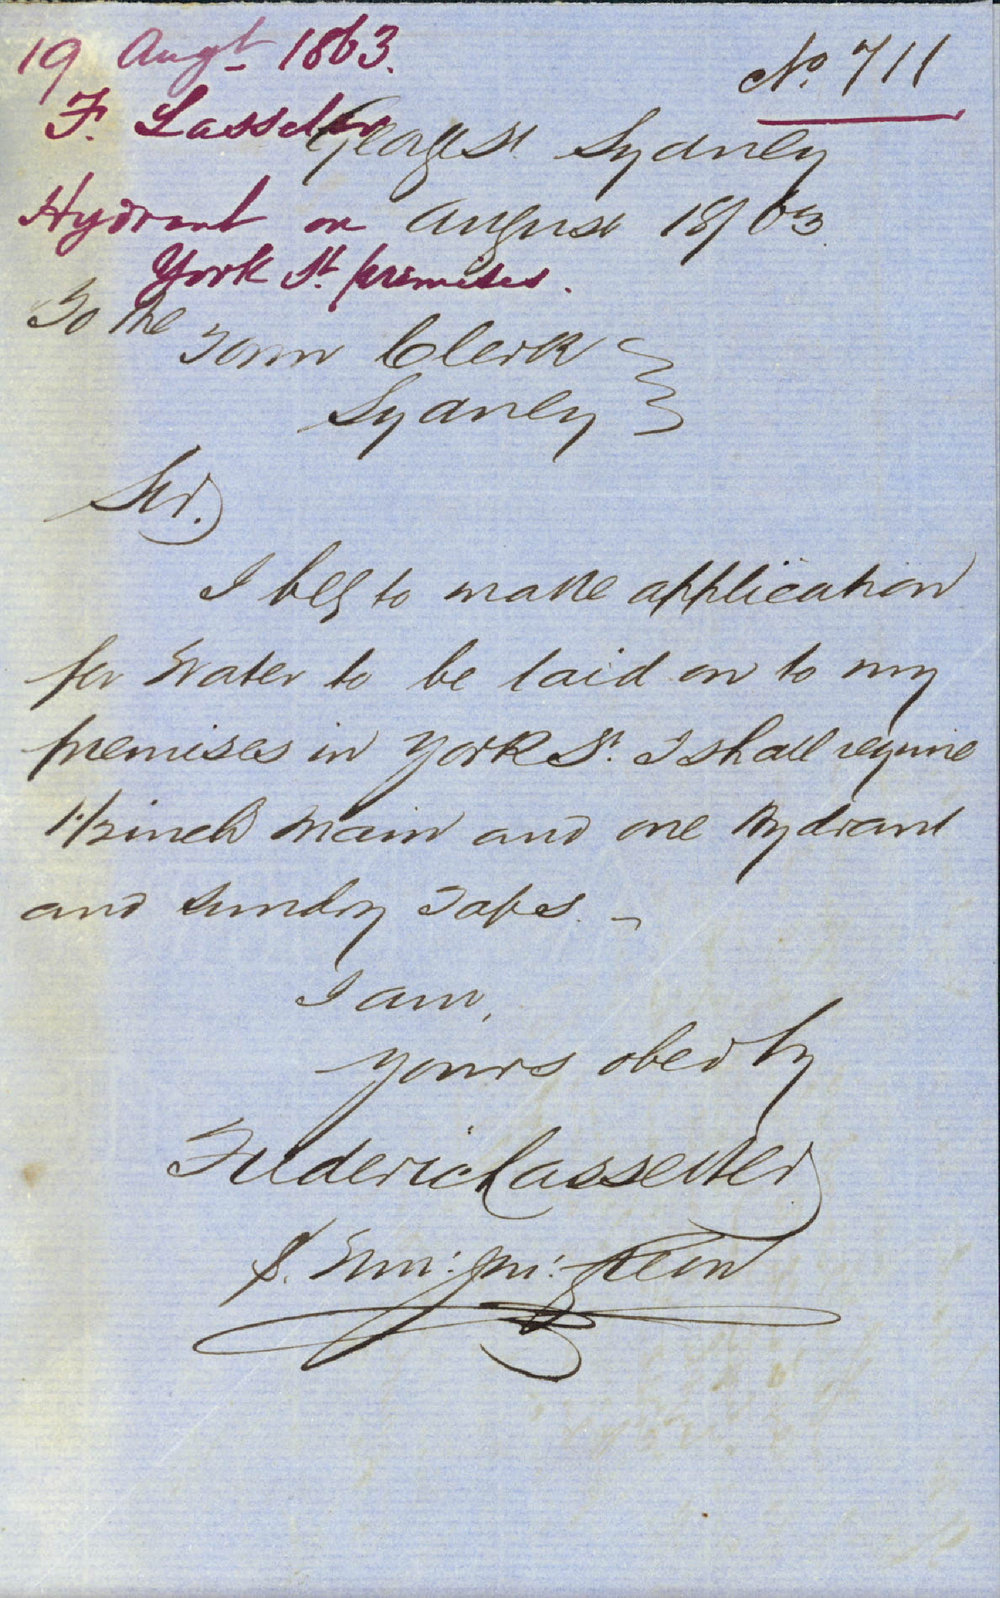 19 Augt 1863.
No. 711
F. Lassetter
George St. Sydney
Hydrant on
August 18/63
York St. premises.
To the
Town Clerk
Sydney
Sir.
I beg to make application
for Water to be laid on to my
premises in York St. I shall require
1 1/2 inch Main and one Hydrant
and sundry Taps. -
I am,
Yours obedtly
Frederic Lassetter